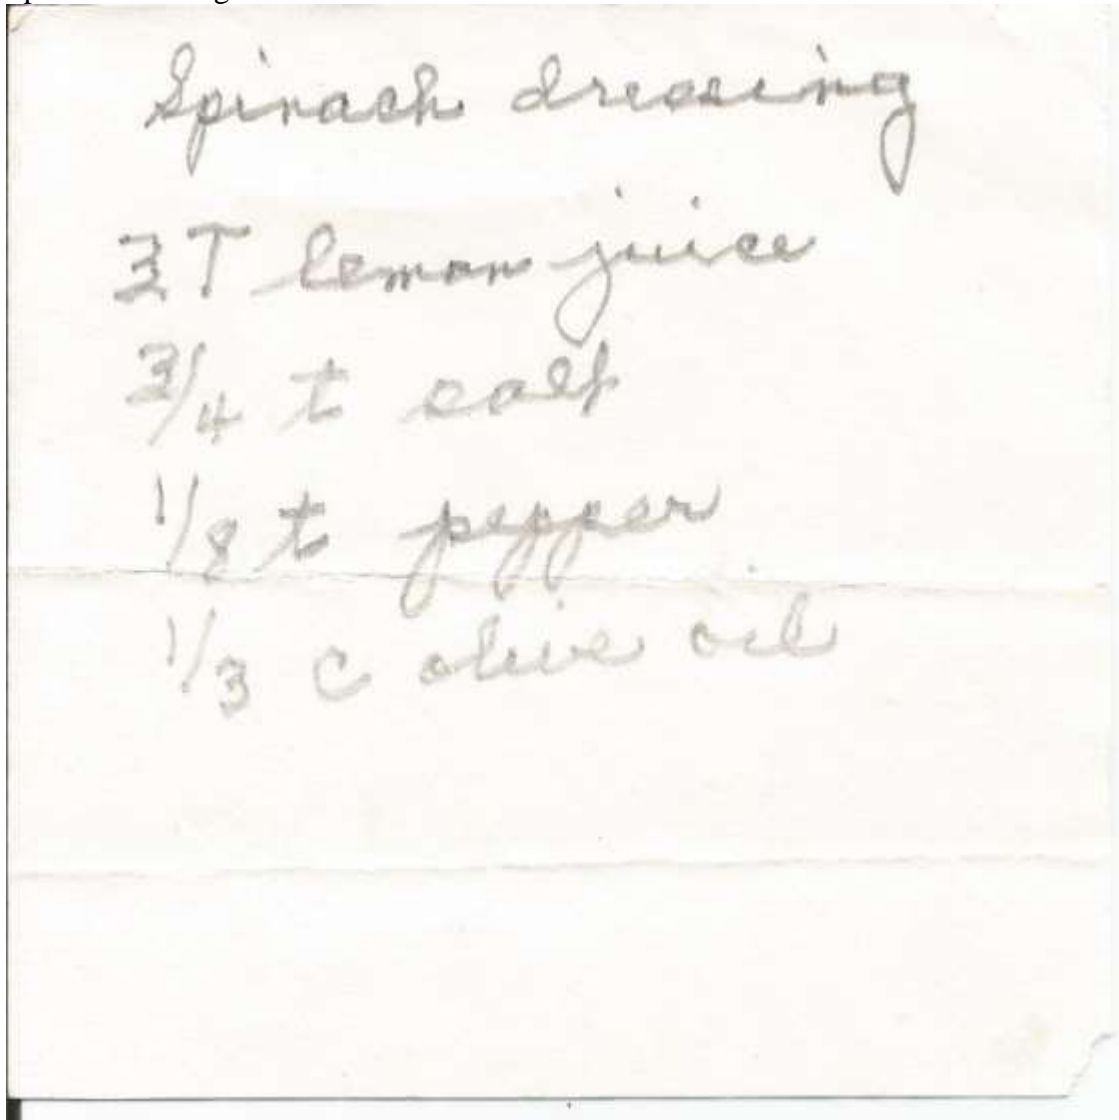 Spinach dressing
3 T lemon juice
3/4 t salt
1/8 t pepper
1/3 c olive oil